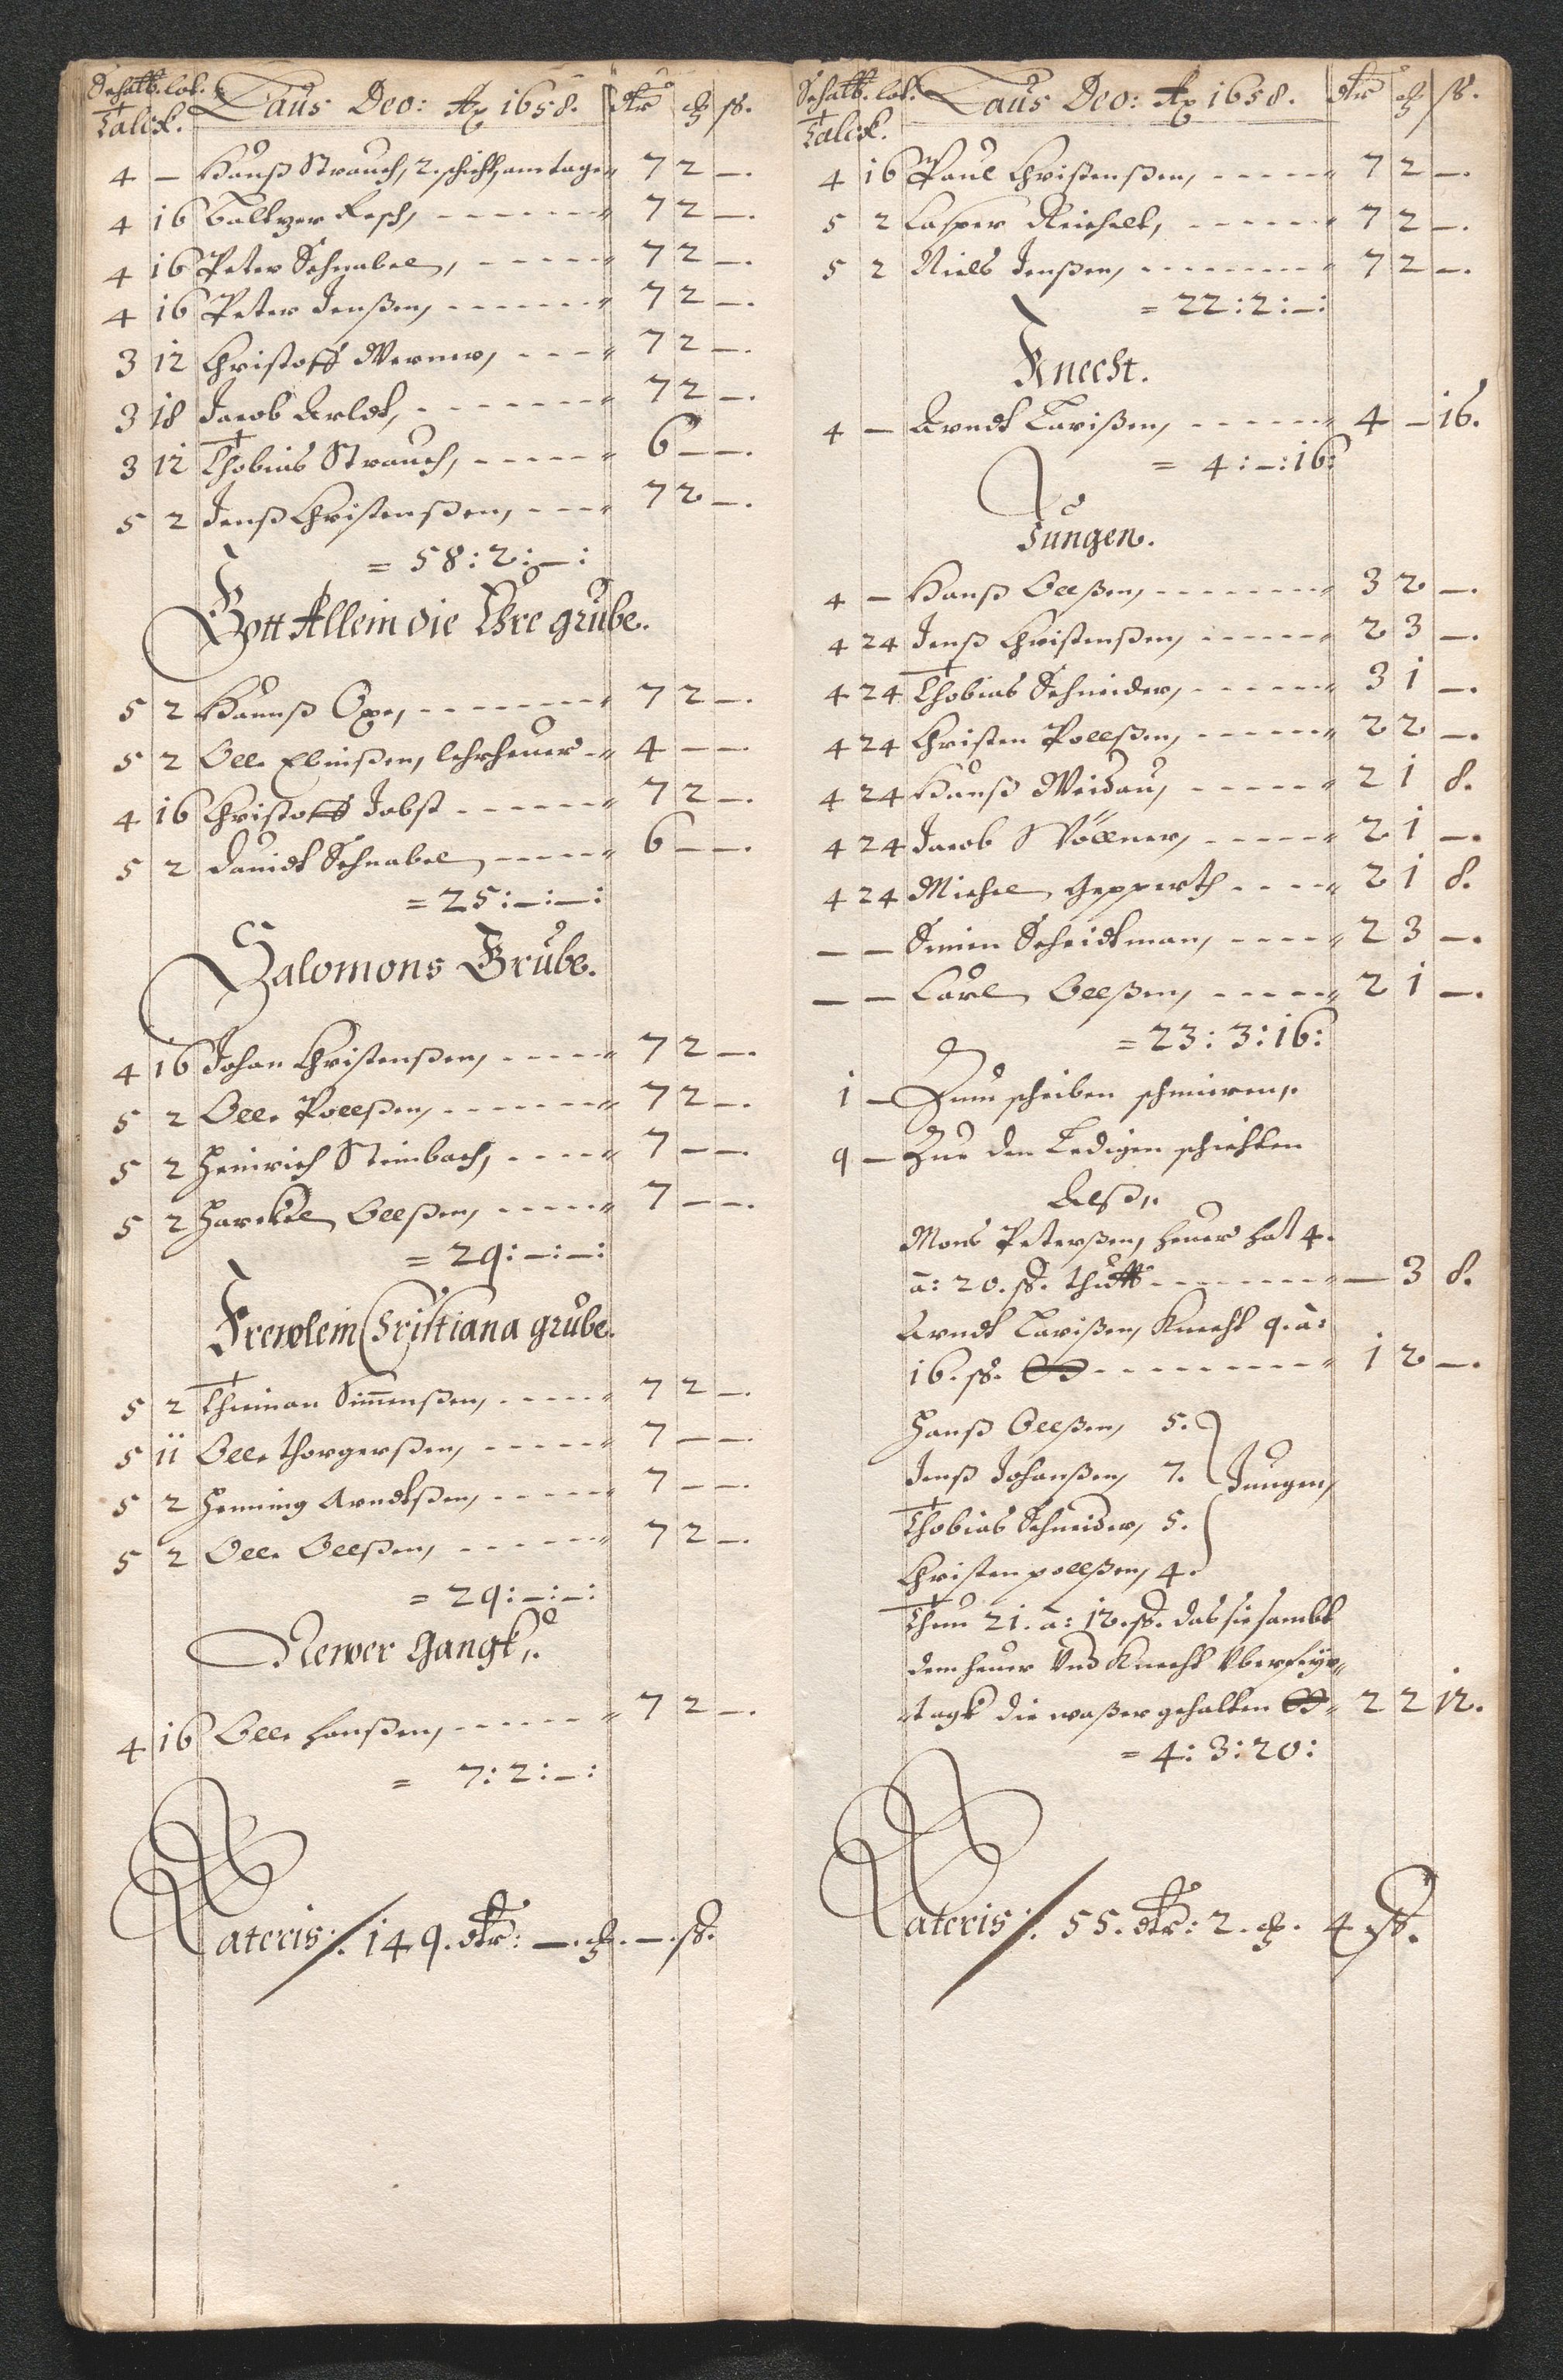 Schalb. lot. Laus Deo: Ao 1658. dlr ch ß.
Talck.
4 — Hanß Strauch, 2. schicht, am tage 7 2 —.
4 16 Baltzer Resch, 7 2 —.
4 16 Peter Schnabel, 7 2 —.
4 16 Peter Jenßen, 7 2 —.
3 12 Christoff Werner, 7 2 —.
3 18 Jacob Arldt, 7 2 —.
3 12 Thobias Strauch, 6 — —.
5 2 Jenß Christenßen, 7 2 —.
= 58: 2: —:
Gott Allein die Ehre grube.
5 2 Hannß Oxe, 7 2 —.
5 2 Olle Elinißen, lehrheuer 4 — —.
4 16 Christoff Jobst 7 2 —.
5 2 Davidt Schnabel 6 — —.
= 25: —: —:
Salomons Grube.
4 16 Johan Christenßen, 7 2 —.
5 2 Olle Pollßen, 7 2 —.
5 2 Heinrich Steinbach, 7 — —.
5 2 Harckel Ollßen, 7 — —.
= 29: —: —:
Frewlein Christiana grube.
5 2 Thiman Simenßen, 7 2 —.
5 11 Olle thorgerßen, 7 — —.
5 2 Henning Arndtßen, 7 — —.
5 2 Olle Ollßen, 7 2 —.
= 29: —: —:
Newer Gangk,.
4 16 Olle Hanßen, 7 2 —.
= 7: 2: —:
Lateris:/. 149. dlr: —. ch. —. ß.
Schalb. lot. Laus Deo: Ao 1658. dlr ch ß.
Talck.
4 16 Paul Christenßen, 7 2 —.
5 2 Casper Reichelt, 7 2 —.
5 2 Niels Jenßen, 7 2 —.
= 22: 2: —:
Knecht.
4 — Arndt Larißen, 4 — 16.
= 4: —: 16:
Jungen.
4 — Hanß Ollßen, 3 2 —.
4 24 Jenß Christenßen, 2 3 —.
4 24 Thobias Schneider, 3 1 —.
4 24 Christen Pollßen, 2 2 —.
4 24 Hanß Weidau, 2 1 8.
4 24 Jacob Wöllner, 2 1 —.
4 24 Michel Gepperth 2 1 8.
— — Simen Scheidtman, 2 3 —.
— — Carl Ollßen, 2 1 —.
= 23: 3: 16:
1 — Zum scheiben schmieren,.
9 — Zue den Ledigen schichten
Alß,.
Mons Peterßen, heuer hat 4.
a: 20. ß. thutt — 3 8.
Arndt Larißen, Knecht 9. a:
16. ß. 1 2 —.
Hanß Ollßen, 5.
Jenß Johanßen, 7. Jungen,
Thobias Schneider, 5.
Christen pollßen, 4.
Thun 21. a: 12. ß. das sie sambt
dem heuer Und Knecht Vber feyr¬
tagk die waßer gehalten 2 2 12.
= 4: 3: 20:
Lateris:/. 55. dlr: 2. ch. 4 ß.